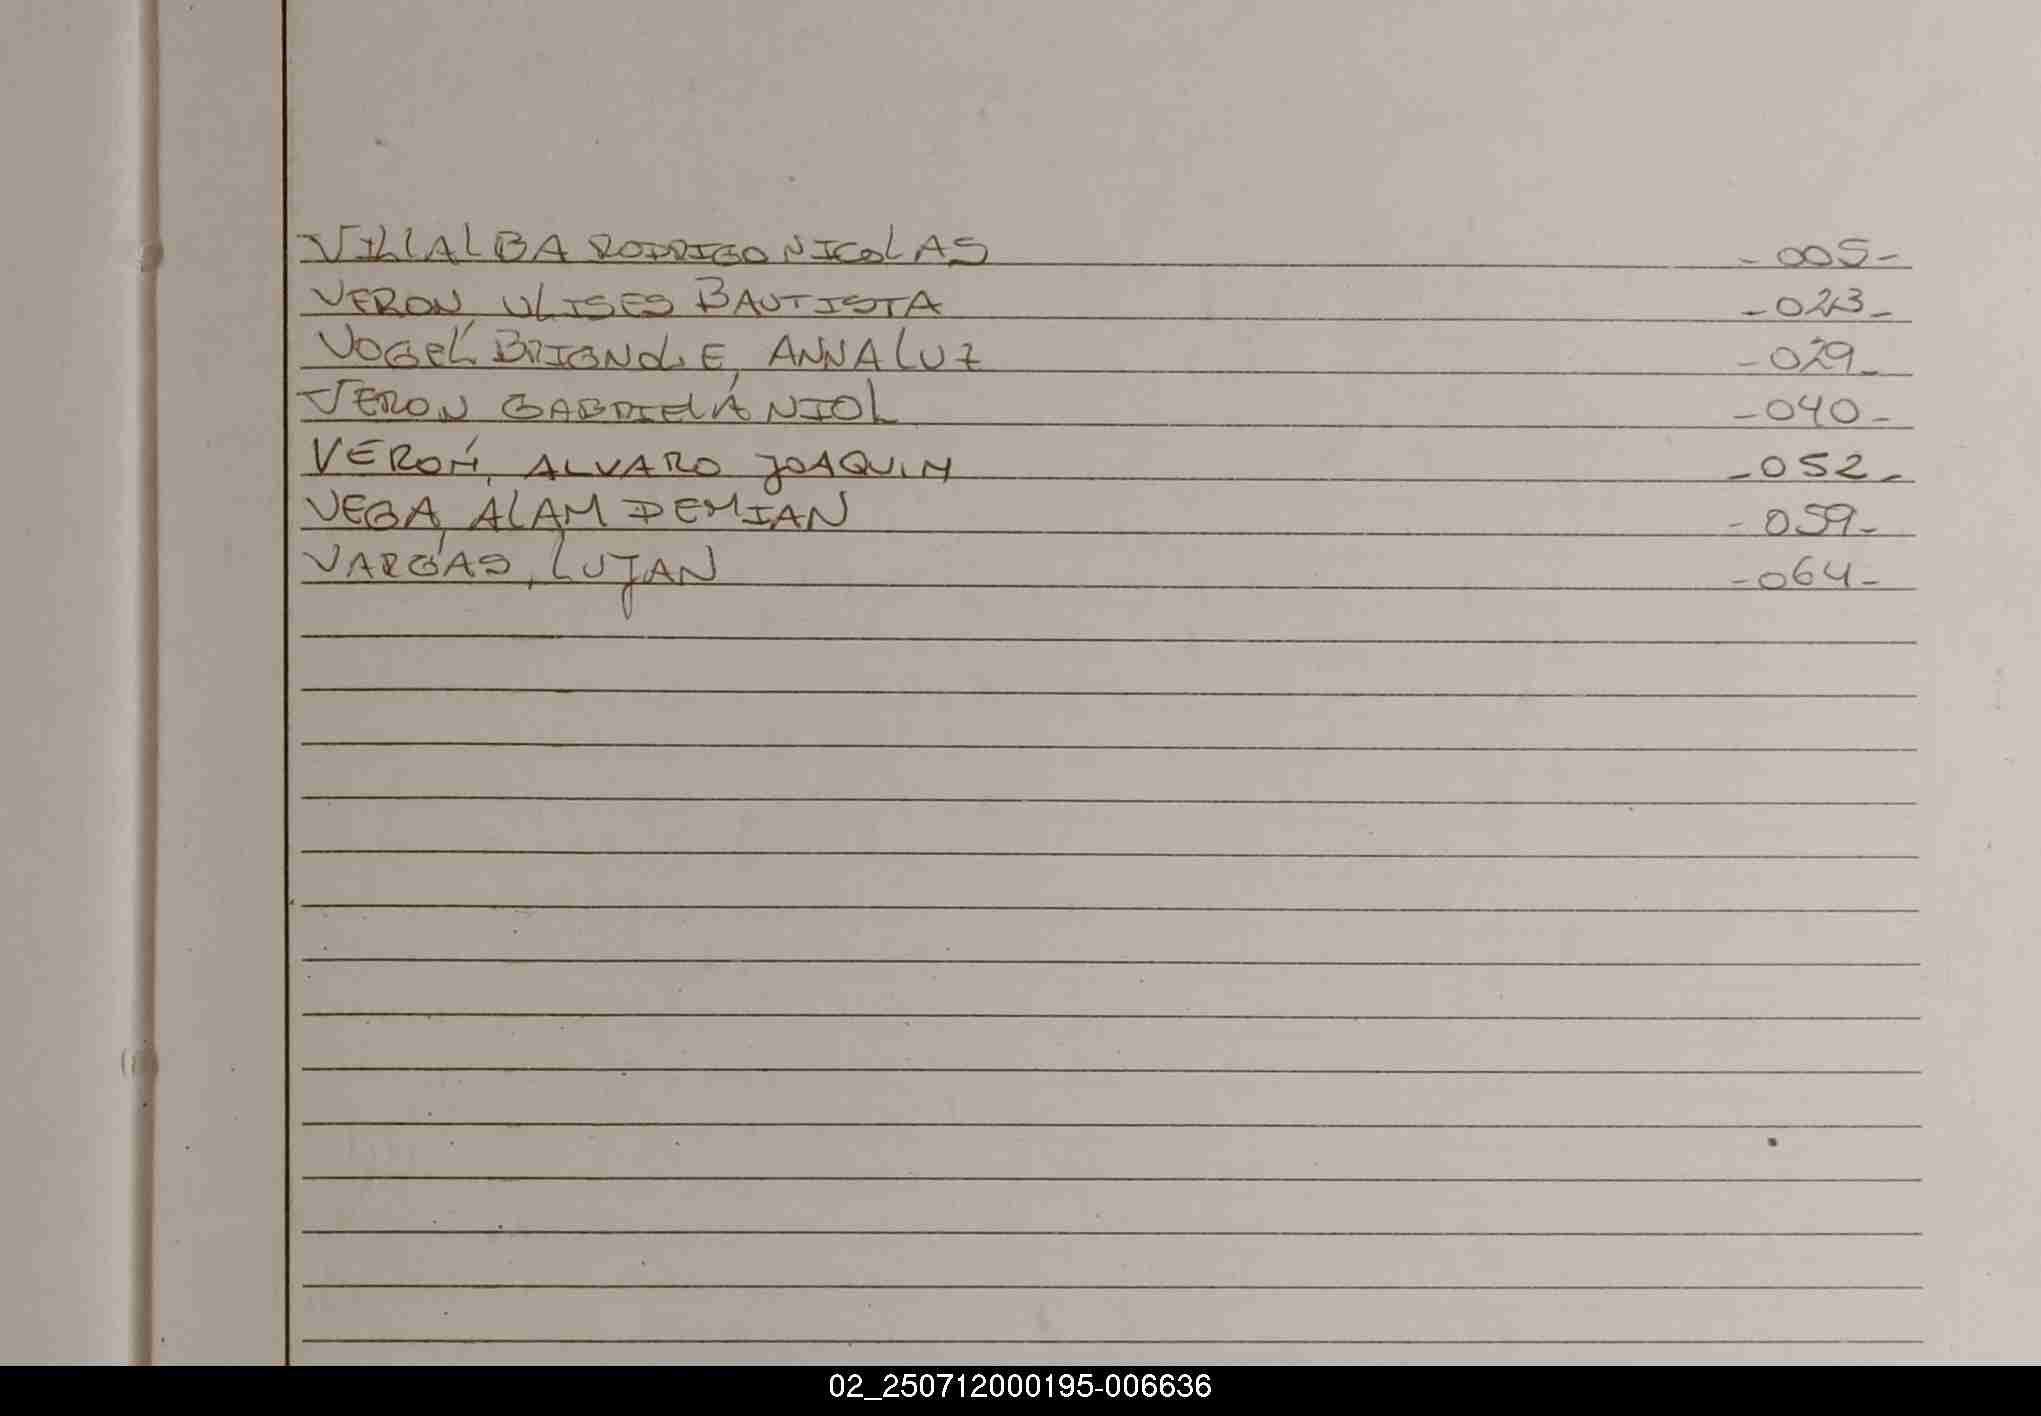 VILLALBA RODRIGO NICOLAS -005-
VERON, ULISES BAUTISTA -023-
VOGEL BRIGNOLE, ANNA LUZ -029-
VERON GABRIELA NIOL -040-
VERÓN, ALVARO JOAQUIN -052-
VEGA, ALAM DEMIAN -059-
VARGAS, LUJAN -064-
02_250712000195-006636